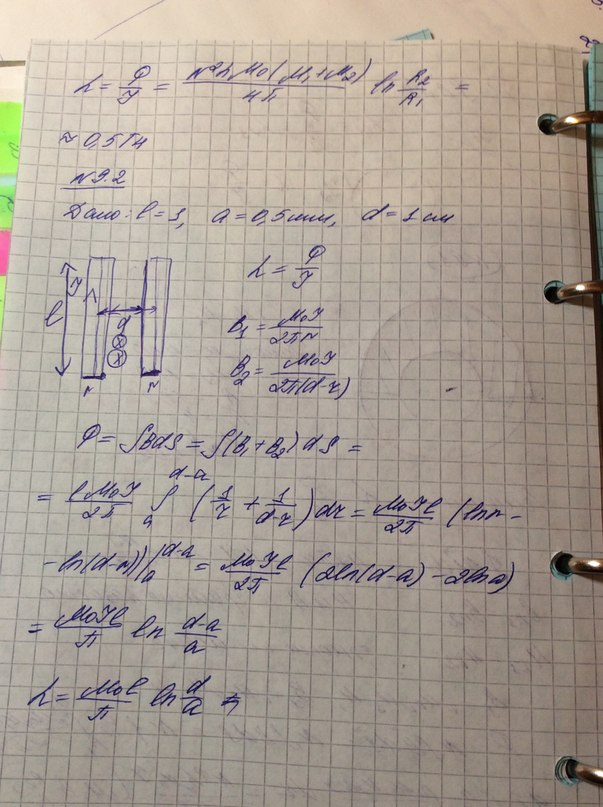 L = Ф/I = N²h μ₀(μ₁+μ₂)/4π ln R₂/R₁ =
≈ 0,5 Гн
N9.2
Дано: l = 1, a = 0,5 мм, d = 1 см
L = Ф/I
I
l
d
B₁ = μ₀I/2πr
B₂ = μ₀I/2π(d-r)
r r
Ф = ∫BdS = ∫(B₁+B₂)dS =
= lμ₀I/2π ∫ₐᵈ⁻ᵃ (1/r + 1/(d-r)) dr = μ₀Il/2π (ln r -
- ln(d-r))|ₐᵈ⁻ᵃ = μ₀Il/2π (2ln(d-a) - 2ln a)
= μ₀Il/π ln (d-a)/a
L = μ₀l/π ln d/a